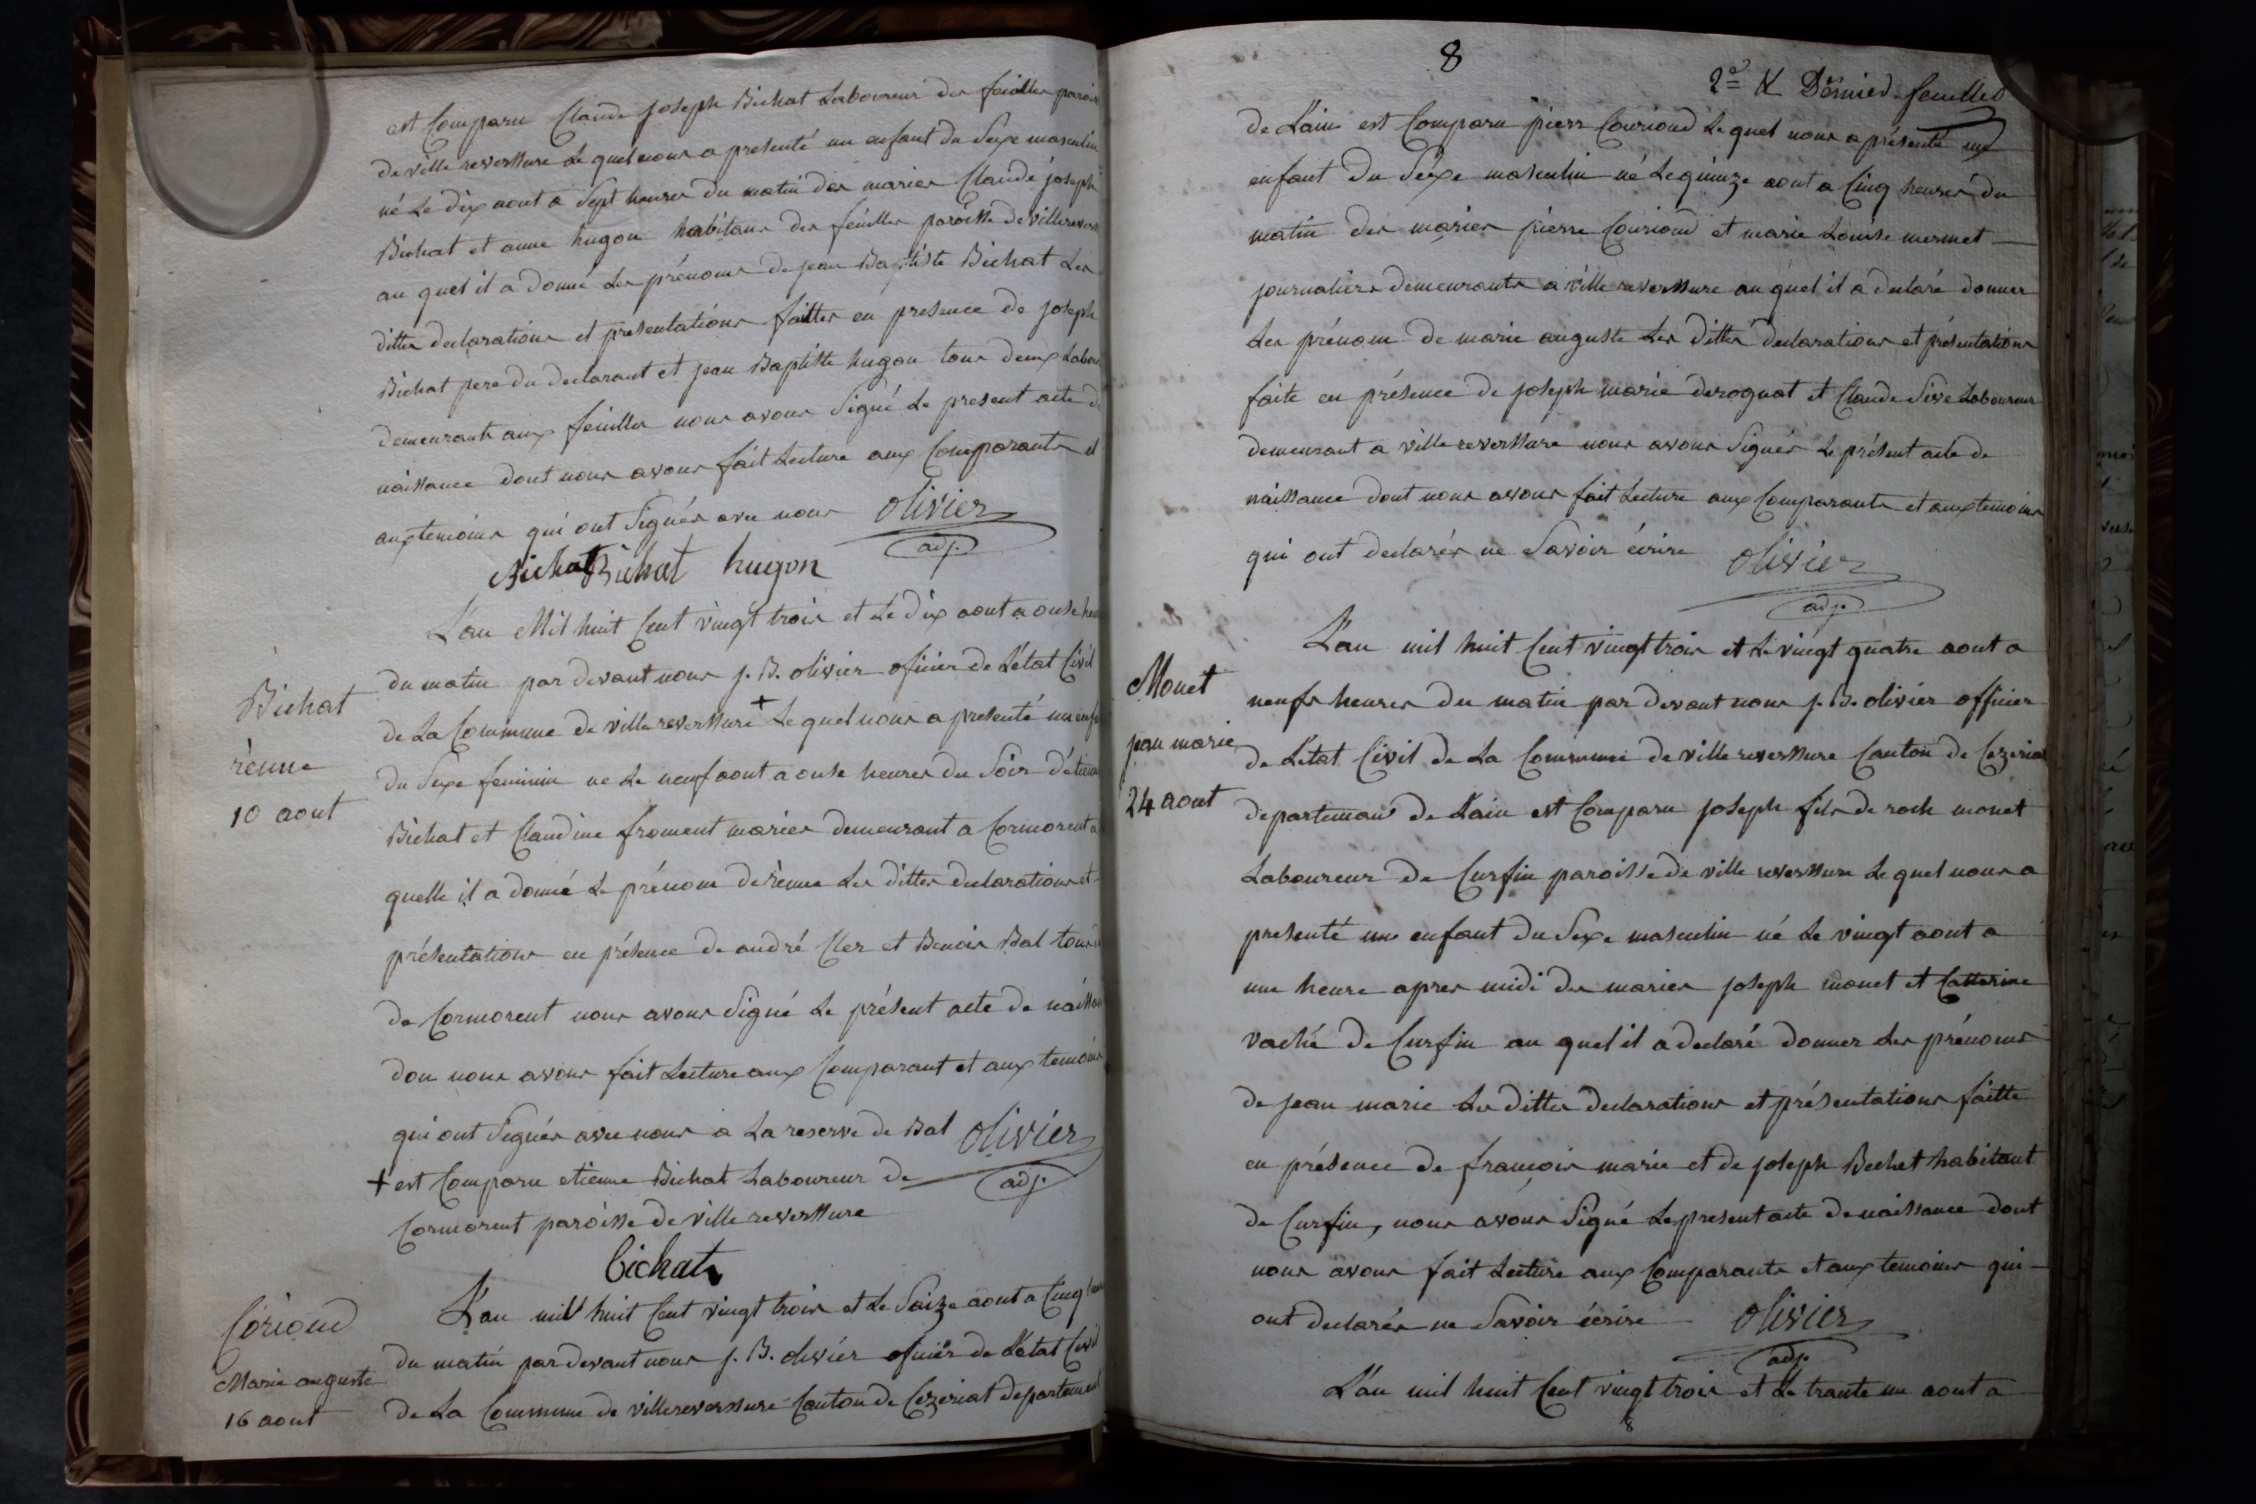 est Comparu Claude joseph Bichat Laboureur des feuilles parois
de ville reverssure Le quel nous a presenté un enfant du Sexe masculin
né Le dix aout a Sept heures du matin des mariés Claude joseph
Bichat et anne hugon habitans des feuilles paroisse de villerevers
au quel il a donné Les prénoms de jean Baptiste Bichat Les
dittes declarations et presentations faittes en presence de joseph
Bichat pere du declarant et jean Baptiste hugon tous deux Labou
demeurants aux feuilles nous avons Signé Le present acte de
naissance dont nous avons fait Lecture aux Comparants et
aux temoins qui ont Signés avec nous olivier
adj.
Bichat Bichat hugon
L'an Mil huit Cent vingt trois et Le dix aout a onse heu
du matin par devant nous j. B. olivier oficier de L'état Civil
de La Commune de ville reverssure + Le quel nous a presenté un enf
du Sexe feminin né Le neuf aout a onse heures du Soir d'étienne
Bichat et Claudine froment mariés demeurant a Cormorent a
quelle il a donné Le prénom de rènne Les dittes declarations et
présentations en présence de andré Cler et Benoix Bal tous d
de Cormorent nous avons Signé Le présent acte de naissan
don nous avons fait Lecture aux Comparant et aux temoins
qui ont Signés avec nous a La reserve de Bal olivier
adj.
+ est Comparu etienne Bichat Laboureur de
Cormorent paroisse de ville reverssure
bichat
Bichat
rènne
10 aout
L'an mil huit Cent vingt trois et Le Saize aout a Cinq heu
du matin par devant nous j. B. olivier oficier de L'état Civil
de La Commune de villereverssure Canton de Cezeriat departement
Coriond
Marie auguste
16 aout
8
2e & Dernier feuillet
de L'ain est Comparu pierr Couriond Le quel nous a présenté un
enfant du Sexe masculin né Le quinze aout a Cinq heures du
matin des mariés pierre Couriond et marie Louise mermet
journaliers demeurants a ville reverssure au quel il a declaré donner
Les prénom de marie auguste Les dittes declarations et présentations
faite en présence de joseph marie derognat et Claude Sive Laboureur
demeurant a ville reverssure nous avons Signés Le présent acte de
naissance dont nous avons fait Lecture aux Comparants et aux temoins
qui ont declarés ne Savoir écrire olivier
adj.
L'an mil huit Cent vingt trois et Le vingt quatre aout a
neufs heures du matin par devant nous j. B. olivier officier
de L'état Civil de La Commune de ville reverssure Canton de Cezeriat
departemant de L'ain est Comparu joseph fils de roch monet
Laboureur de Curfin paroisse de ville reverssure Le quel nous a
presenté un enfant du Sexe masculin né Le vingt aout a
une heure apres midi des mariés joseph monet et Catterine
vaché de Curfin au quel il a declaré donner Les prénoms
de jean marie Les dittes declarations et présentations faitte
en présence de françois marie et de joseph Bechet habitant
de Curfin, nous avons Signé Le present acte de naissance dont
nous avons fait Lecture aux Comparants et aux temoins qui
ont declarés ne Savoir écrire olivier
adj.
Monet
jean marie
24 aout
L'an mil huit Cent vingt trois et Le trante un aout a
8